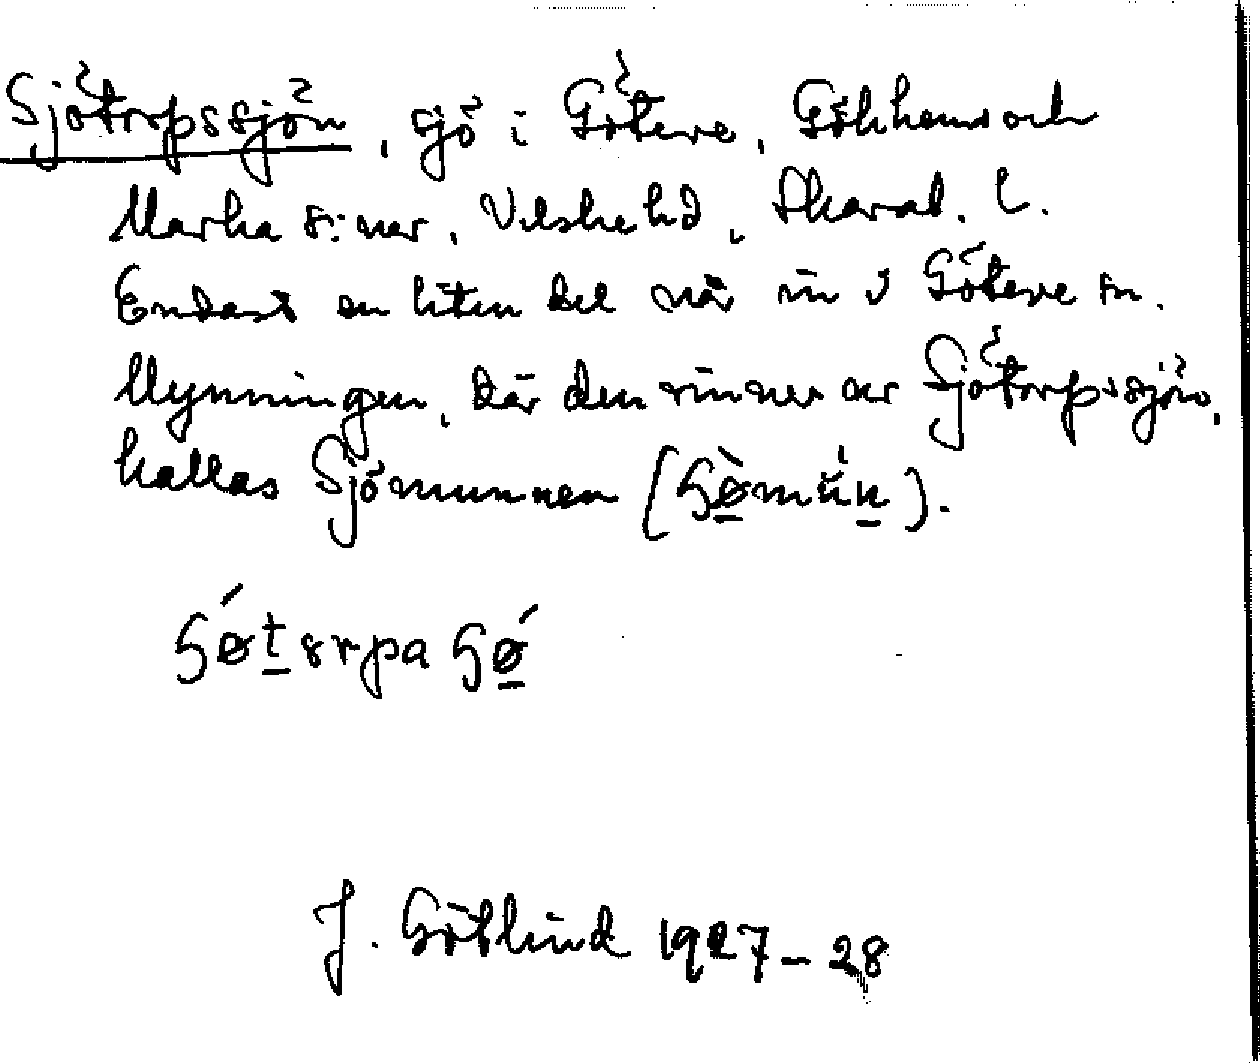 Sjötorpssjön, sjö i Göteve, Gökhems och
Marka s:nar, Vilske hd, Skarab. l.
Endast en liten del når in i Göteve sn.
Mynningen, där den rinner ur Sjötorpssjön,
kallas Sjömunnen
J. Götlind 1927–28